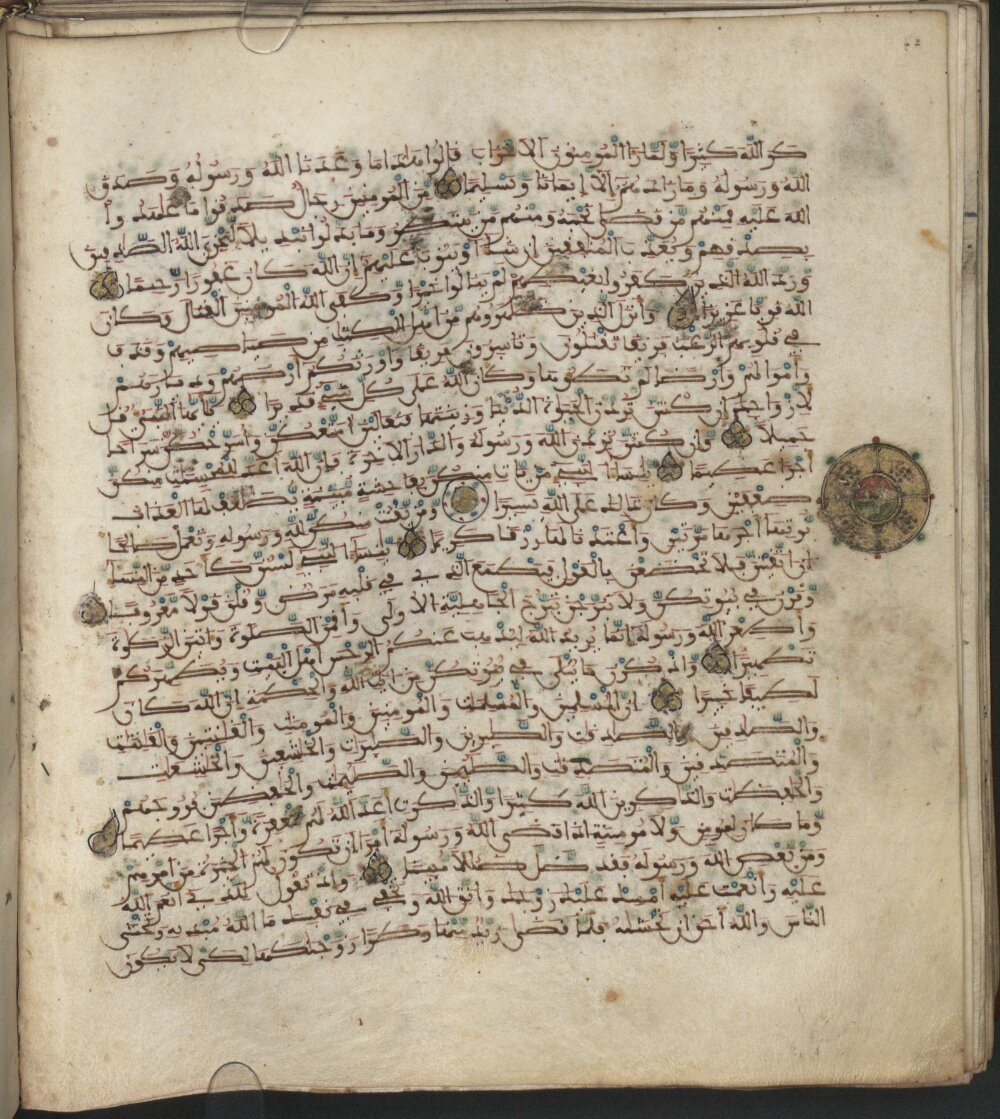 ذكر الله كثيرا ولما را المومنون الاحزاب قالوا هذا ما وعدنا الله ورسوله وصدق
الله ورسوله وما زادهم إلا إيمانا وتسليما من المومنين رجال صدقوا ما عهدوا
الله عليه فمنهم من قضى نحبه ومنهم من ينتظر وما بدلوا تبديلا ليجزي الله الصدقين
بصدقهم ويعذب المنفقين إن شاء أو يتوب عليهم إن الله كان غفورا رحيما
ورد الله الذين كفروا بغيظهم لم ينالوا خيرا وكفى الله المومنين القتال وكان
الله قويا عزيزا وأنزل الذين ظهروهم من أهل الكتب من صياصيهم وقذف
في قلوبهم الرعب فريقا تقتلون وتاسرون فريقا وأورثكم أرضهم وديرهم
وأمولهم وأرضا لم تطئوها وكان الله على كل شيء قديرا يأيها النبي قل
لأزوجك إن كنتن تردن الحيوة الدنيا وزينتها فتعالين أمتعكن وأسرحكن سراحا
جميلا وإن كنتن تردن الله ورسوله والدار الاخرة فإن الله أعد للمحسنت منكن
أجرا عظيما ينساء النبي من يات منكن بفحشة مبينة يضعف لها العذاب
ضعفين وكان ذلك على الله يسيرا ومن يقنت منكن لله ورسوله وتعمل صلحا
نوتها أجرها مرتين وأعتدنا لها رزقا كريما ينساء النبي لستن كأحد من النساء
إن اتقيتن فلا تخضعن بالقول فيطمع الذي في قلبه مرض وقلن قولا معروفا
وقرن في بيوتكن ولا تبرجن تبرج الجهلية الاولى وأقمن الصلوة وءاتين الزكوة
وأطعن الله ورسوله إنما يريد الله ليذهب عنكم الرجس أهل البيت ويطهركم
تطهيرا واذكرن ما يتلى في بيوتكن من ءايت الله والحكمة إن الله كان
لطيفا خبيرا إن المسلمين والمسلمت والمومنين والمومنت والقنتين والقنتت
والصدقين والصدقت والصبرين والصبرت والخشعين والخشعت
والمتصدقين والمتصدقت والصيمين والصيمت والحفظين فروجهم
والحفظت والذكرين الله كثيرا والذكرت أعد الله لهم مغفرة وأجرا عظيما
وما كان لمومن ولا مومنة إذا قضى الله ورسوله أمرا أن تكون لهم الخيرة من أمرهم
ومن يعص الله ورسوله فقد ضل ضللا مبينا وإذ تقول للذي أنعم الله
عليه وأنعمت عليه أمسك عليك زوجك واتق الله وتخفي في نفسك ما الله مبديه وتخشى
الناس والله أحق أن تخشيه فلما قضى زيد منها وطرا زوجنكها لكي لا يكون